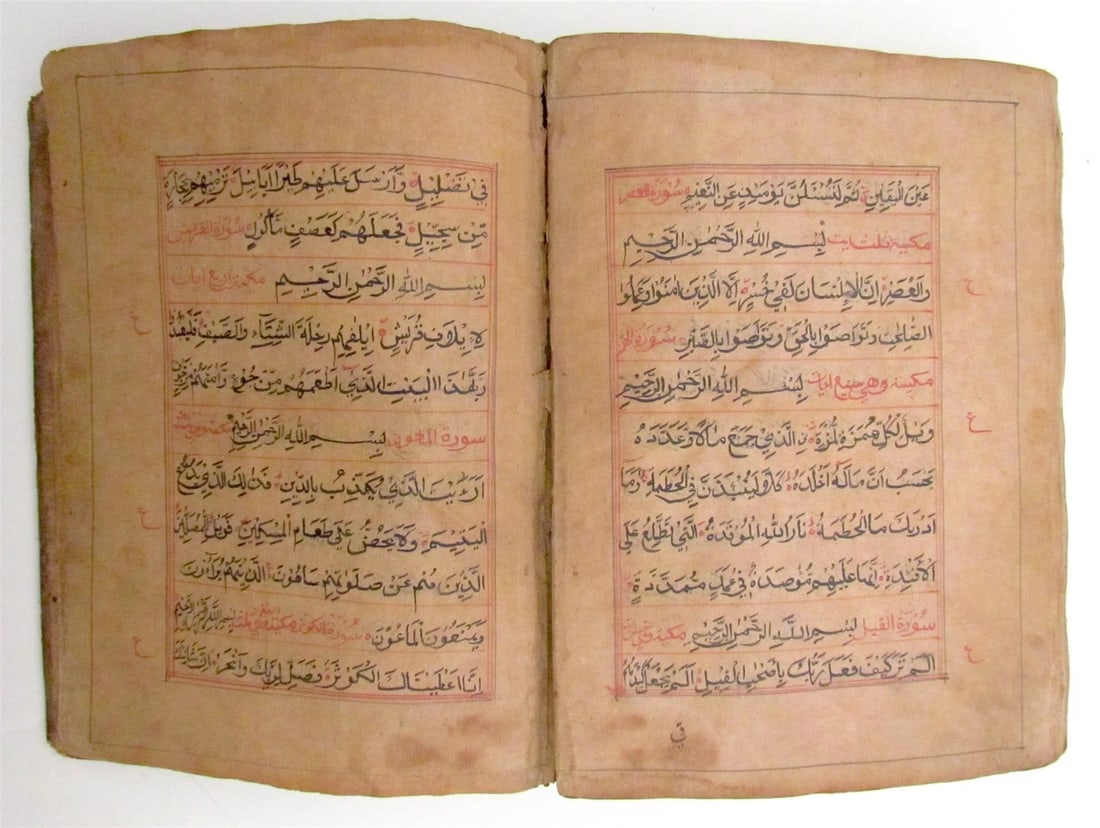 عَيْنَ الْيَقِيْنِ ثُمَّ لَتُسْئَلُنَّ يَوْمَئِذٍ عَنِ النَّعِيْمِ سورة العصر
مكية ثلث ايات بِسْمِ اللهِ الرَّحْمٰنِ الرَّحِيْمِ
وَالْعَصْرِ اِنَّ الْاِنْسَانَ لَفِيْ خُسْرٍ اِلَّا الَّذِيْنَ اٰمَنُوْا وَعَمِلُوا
الصّٰلِحٰتِ وَتَوَاصَوْا بِالْحَقِّ وَتَوَاصَوْا بِالصَّبْرِ سورة
مكية وهي ايات بِسْمِ اللهِ الرَّحْمٰنِ الرَّحِيْمِ
وَيْلٌ لِكُلِّ هُمَزَةٍ لُمَزَةٍ نِ الَّذِيْ جَمَعَ مَالًا وَعَدَّدَهُ
يَحْسَبُ اَنَّ مَالَهُ اَخْلَدَهُ كَلَّا لَيُنْبَذَنَّ فِي الْحُطَمَةِ وَمَا
اَدْرٰىكَ مَا الْحُطَمَةُ نَارُ اللهِ الْمُوْقَدَةُ الَّتِيْ تَطَّلِعُ عَلَى
الْاَفْئِدَةِ اِنَّهَا عَلَيْهِمْ مُؤْصَدَةٌ فِيْ عَمَدٍ مُمَدَّدَةٍ
سورة الفيل بِسْمِ اللهِ الرَّحْمٰنِ الرَّحِيْمِ مكية
اَلَمْ تَرَ كَيْفَ فَعَلَ رَبُّكَ بِاَصْحٰبِ الْفِيْلِ اَلَمْ يَجْعَلْ كَيْدَهُمْ
فِيْ تَضْلِيْلٍ وَّاَرْسَلَ عَلَيْهِمْ طَيْرًا اَبَابِيْلَ تَرْمِيْهِمْ بِحِجَارَةٍ
مِّنْ سِجِّيْلٍ فَجَعَلَهُمْ كَعَصْفٍ مَّأْكُوْلٍ سورة القريش
بِسْمِ اللهِ الرَّحْمٰنِ الرَّحِيْمِ مكية اربع ايات
لِاِيْلٰفِ قُرَيْشٍ اٖلٰفِهِمْ رِحْلَةَ الشِّتَآءِ وَالصَّيْفِ فَلْيَعْبُدُوْا
رَبَّ هٰذَا الْبَيْتِ الَّذِيْ اَطْعَمَهُمْ مِنْ جُوْعٍ وَاٰمَنَهُمْ مِنْ خَوْفٍ
سورة الماعون بِسْمِ اللهِ الرَّحْمٰنِ الرَّحِيْمِ
اَرَاَيْتَ الَّذِيْ يُكَذِّبُ بِالدِّيْنِ فَذٰلِكَ الَّذِيْ يَدُعُّ
الْيَتِيْمَ وَلَا يَحُضُّ عَلٰى طَعَامِ الْمِسْكِيْنِ فَوَيْلٌ لِلْمُصَلِّيْنَ
الَّذِيْنَ هُمْ عَنْ صَلٰوتِهِمْ سَاهُوْنَ الَّذِيْنَ هُمْ يُرَآءُوْنَ
وَيَمْنَعُوْنَ الْمَاعُوْنَ سورة الكوثر مكية بِسْمِ اللهِ الرَّحْمٰنِ الرَّحِيْمِ
اِنَّا اَعْطَيْنٰكَ الْكَوْثَرَ فَصَلِّ لِرَبِّكَ وَانْحَرْ اِنَّ شَانِئَكَ